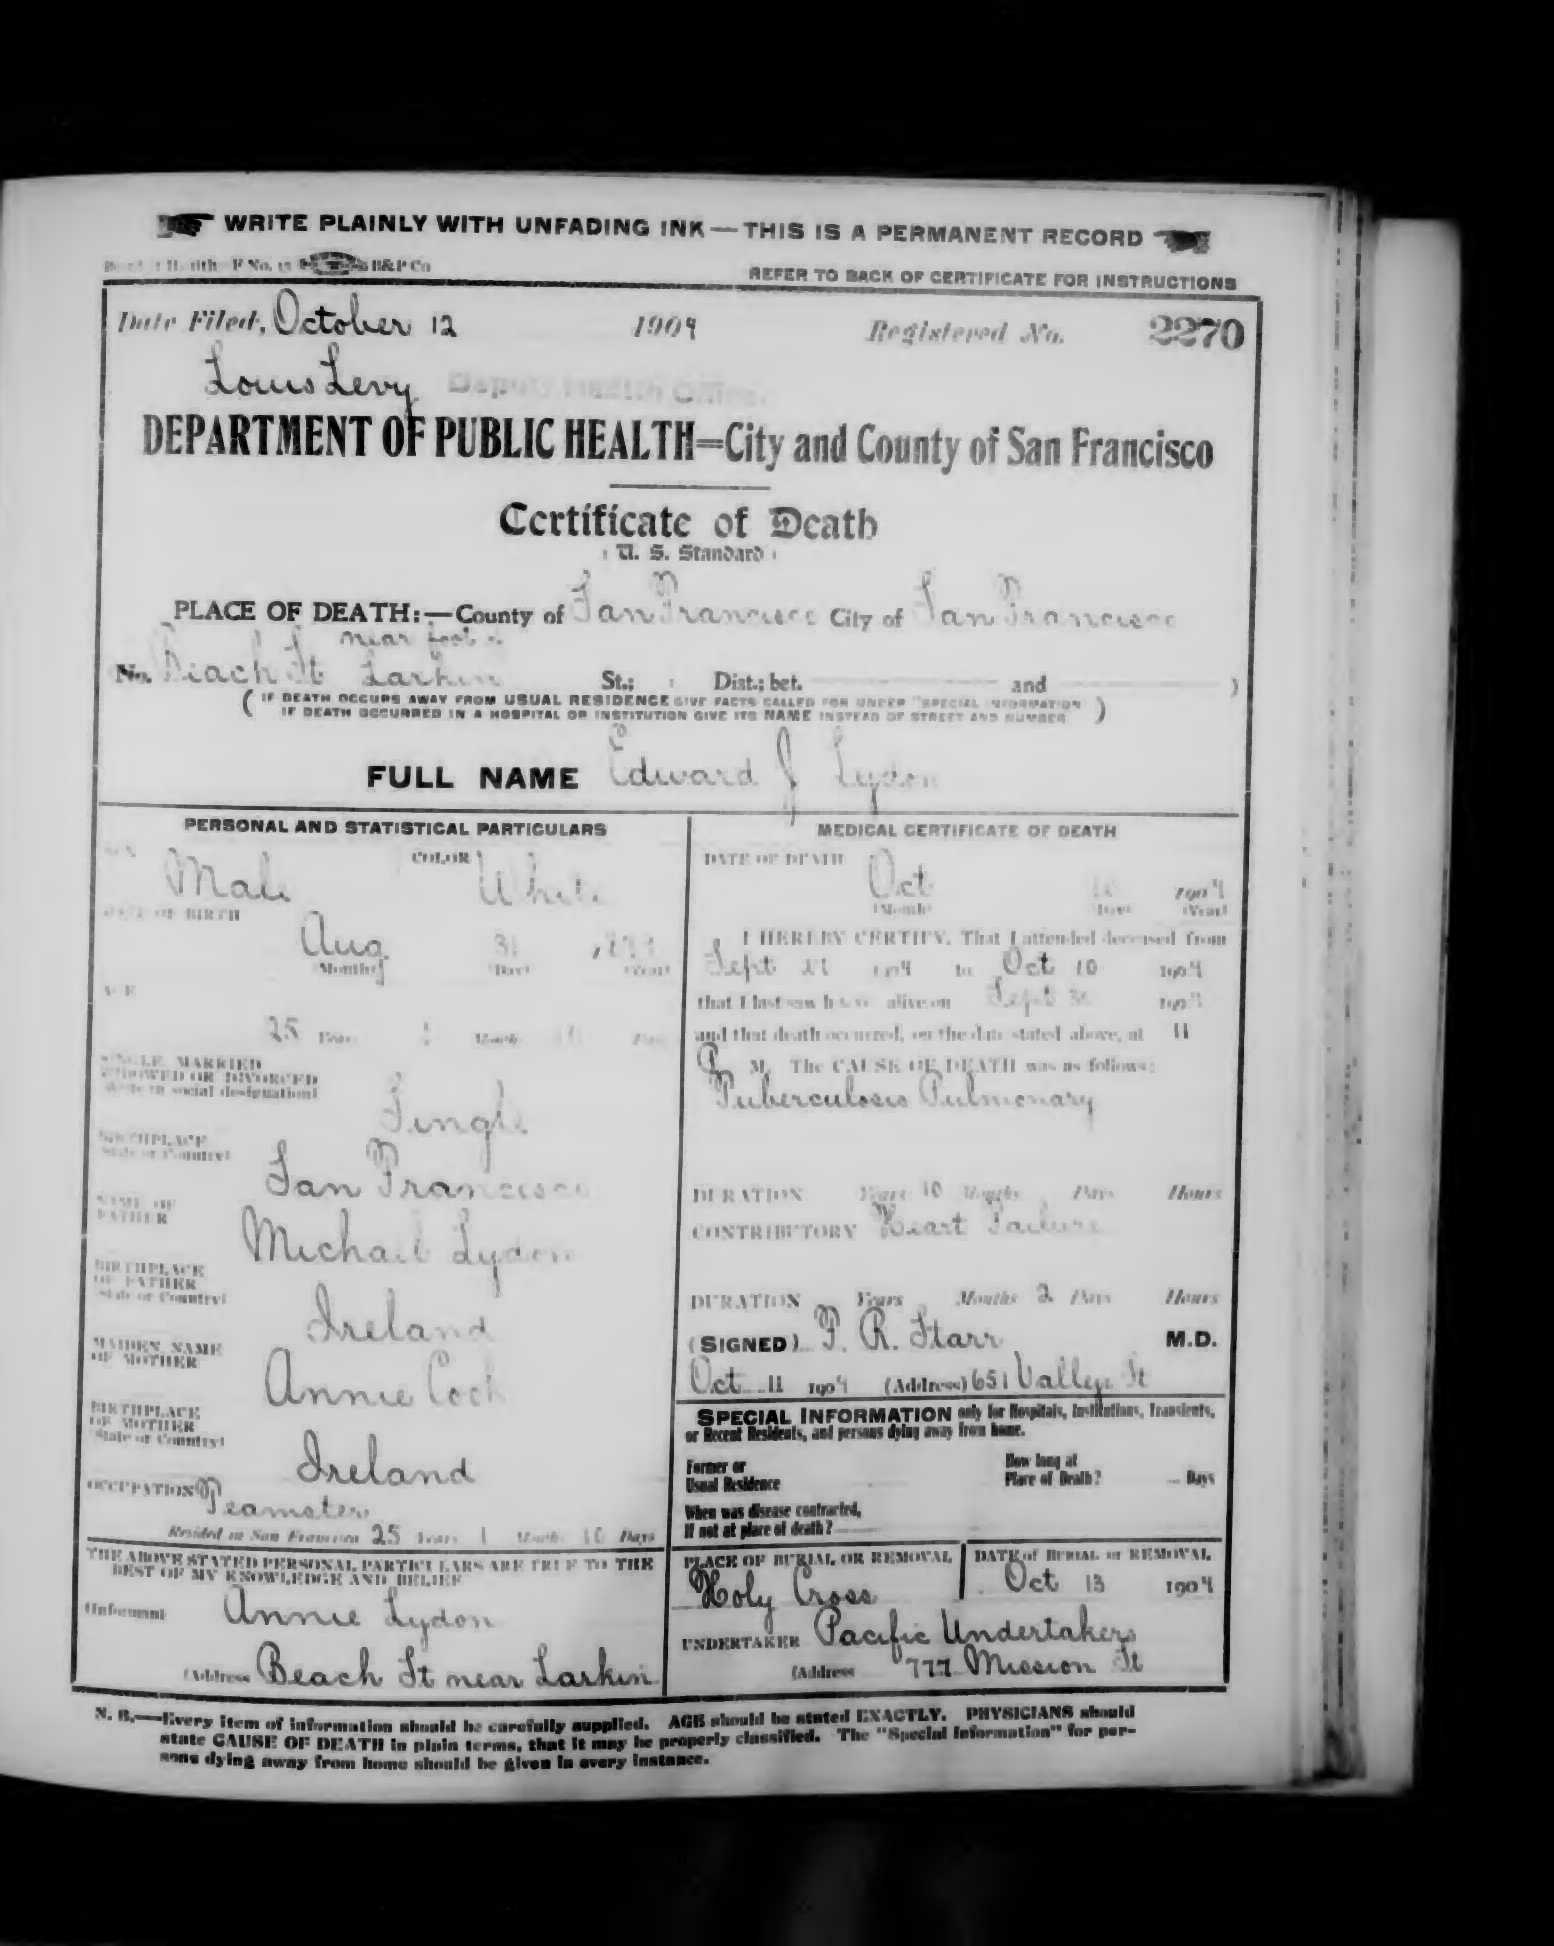 WRITE PLAINLY WITH UNFADING INK—THIS IS A PERMANENT RECORD
B&P Co
REFER TO BACK OF CERTIFICATE FOR INSTRUCTIONS
Date Filed, October 12 1904 Registered No. 2270
Louis Levy Deputy Health Officer
DEPARTMENT OF PUBLIC HEALTH=City and County of San Francisco
Certificate of Death
(U. S. Standard)
PLACE OF DEATH:—County of San Francisco City of San Francisco
near foot of
No. Beach St Larkin St.; Dist.; bet. and )
( IF DEATH OCCURS AWAY FROM USUAL RESIDENCE GIVE FACTS CALLED FOR UNDER "SPECIAL INFORMATION"
IF DEATH OCCURRED IN A HOSPITAL OR INSTITUTION GIVE ITS NAME INSTEAD OF STREET AND NUMBER )
FULL NAME Edward J Lydon
PERSONAL AND STATISTICAL PARTICULARS
SEX Male COLOR White
DATE OF BIRTH
Aug 31
(Month) (Day) (Year)
AGE
25 Years 1 Months 10 Days
SINGLE, MARRIED
WIDOWED OR DIVORCED
(Write in social designation)
Single
BIRTHPLACE
(State or Country)
San Francisco
NAME OF
FATHER
Michael Lydon
BIRTHPLACE
OF FATHER
(State or Country)
Ireland
MAIDEN NAME
OF MOTHER
Annie Cook
BIRTHPLACE
OF MOTHER
(State or Country)
Ireland
OCCUPATION Teamster
Resided in San Francisco 25 Years 1 Months 10 Days
THE ABOVE STATED PERSONAL PARTICULARS ARE TRUE TO THE
BEST OF MY KNOWLEDGE AND BELIEF
(Informant Annie Lydon
(Address Beach St near Larkin
MEDICAL CERTIFICATE OF DEATH
DATE OF DEATH
Oct 10 1904
(Month) (Day) (Year)
I HEREBY CERTIFY, That I attended deceased from
Sept 1904 to Oct 10 1904
that I last saw h alive on Sept 30 1904
and that death occurred, on the date stated above, at 11
P M. The CAUSE OF DEATH was as follows:
Tuberculosis Pulmonary
DURATION Years 10 Months Days Hours
CONTRIBUTORY Heart Failure
DURATION Years Months 2 Days Hours
(SIGNED) P. R. Starr M.D.
Oct 11 1904 (Address) 651 Valley St
SPECIAL INFORMATION only for Hospitals, Institutions, Transients,
or Recent Residents, and persons dying away from home.
Former or
Usual Residence
How long at
Place of Death? Days
When was disease contracted,
If not at place of death?
PLACE OF BURIAL OR REMOVAL
Holy Cross
DATE of BURIAL or REMOVAL
Oct 13 1904
UNDERTAKER Pacific Undertakers
(Address 777 Mission St
N. B.—Every item of information should be carefully supplied. AGE should be stated EXACTLY. PHYSICIANS should
state CAUSE OF DEATH in plain terms, that it may be properly classified. The "Special Information" for per-
sons dying away from home should be given in every instance.